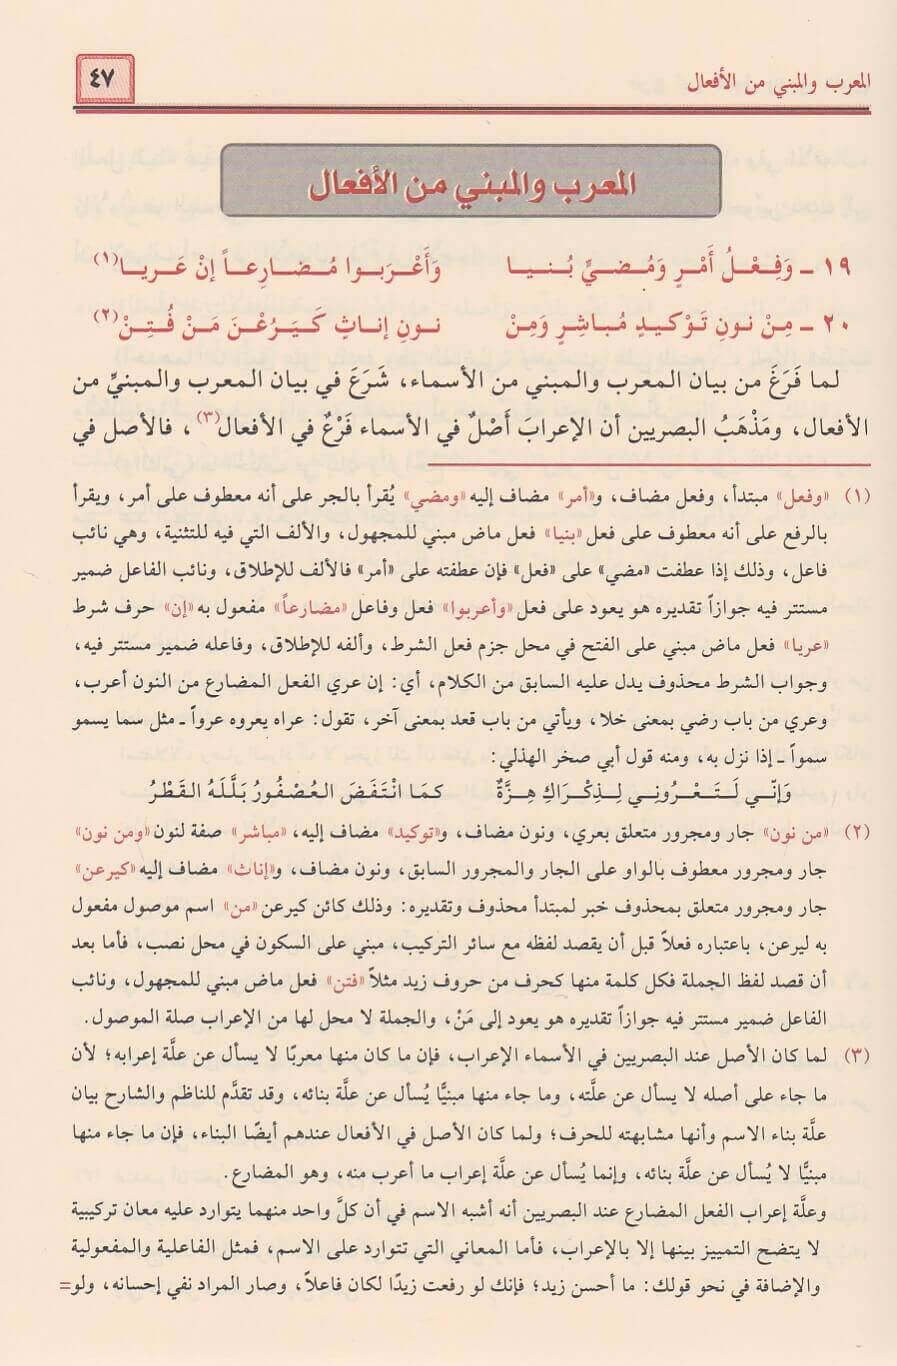 المعرب والمبني من الأفعال
٤٧
المعرب والمبني من الأفعال
١٩ ـ وَفِعْلُ أَمْرٍ وَمُضِيٍّ بُنيا وَأَعْرَبوا مُضارِعاً إنْ عَريا(١)
٢٠ ـ مِنْ نونِ تَوْكيدٍ مُباشِرٍ وَمِنْ نونِ إناثٍ كَيَرُعْنَ مَنْ فُتِنْ(٢)
لما فَرَغَ من بيان المعرب والمبني من الأسماء، شَرَعَ في بيان المعرب والمبنيِّ من
الأفعال، ومَذْهَبُ البصريين أن الإعرابَ أَصْلٌ في الأسماء فَرْعٌ في الأفعال(٣)، فالأصل في
(١) «وفعل» مبتدأ، وفعل مضاف، و«أمر» مضاف إليه «ومضي» يُقرأ بالجر على أنه معطوف على أمر، ويقرأ
بالرفع على أنه معطوف على فعل «بنيا» فعل ماض مبني للمجهول، والألف التي فيه للتثنية، وهي نائب
فاعل، وذلك إذا عطفت «مضي» على «فعل» فإن عطفته على «أمر» فالألف للإطلاق، ونائب الفاعل ضمير
مستتر فيه جوازاً تقديره هو يعود على فعل «وأعربوا» فعل وفاعل «مضارعاً» مفعول به «إن» حرف شرط
«عريا» فعل ماض مبني على الفتح في محل جزم فعل الشرط، وألفه للإطلاق، وفاعله ضمير مستتر فيه،
وجواب الشرط محذوف يدل عليه السابق من الكلام، أي: إن عري الفعل المضارع من النون أعرب،
وعري من باب رضي بمعنى خلا، ويأتي من باب قعد بمعنى آخر، تقول: عراه يعروه عرواً ـ مثل سما يسمو
سمواً ـ إذا نزل به، ومنه قول أبي صخر الهذلي:
وَإنّي لَتَعْرُوني لِذِكْرَاكِ هِزَّةٌ كمَا انْتَفَضَ العُصْفُورُ بَلَّلَهُ القَطْرُ
(٢) «من نون» جار ومجرور متعلق بعري، ونون مضاف، و«توكيد» مضاف إليه، «مباشر» صفة لنون «ومن نون»
جار ومجرور معطوف بالواو على الجار والمجرور السابق، ونون مضاف، و«إناث» مضاف إليه «كيرعن»
جار ومجرور متعلق بمحذوف خبر لمبتدأ محذوف وتقديره: وذلك كائن كيرعن «من» اسم موصول مفعول
به ليرعن، باعتباره فعلاً قبل أن يقصد لفظه مع سائر التركيب، مبني على السكون في محل نصب، فأما بعد
أن قصد لفظ الجملة فكل كلمة منها كحرف من حروف زيد مثلاً «فتن» فعل ماض مبني للمجهول، ونائب
الفاعل ضمير مستتر فيه جوازاً تقديره هو يعود إلى مَنْ، والجملة لا محل لها من الإعراب صلة الموصول.
(٣) لما كان الأصل عند البصريين في الأسماء الإعراب، فإن ما كان منها معربًا لا يسأل عن علَّة إعرابه؛ لأن
ما جاء على أصله لا يسأل عن علَّته، وما جاء منها مبنيًّا يُسأل عن علَّة بنائه، وقد تقدَّم للناظم والشارح بيان
علَّة بناء الاسم وأنها مشابهته للحرف؛ ولما كان الأصل في الأفعال عندهم أيضًا البناء، فإن ما جاء منها
مبنيًّا لا يُسأل عن علَّة بنائه، وإنما يُسأل عن علَّة إعراب ما أعرب منه، وهو المضارع.
وعلَّة إعراب الفعل المضارع عند البصريين أنه أشبه الاسم في أن كلَّ واحد منهما يتوارد عليه معان تركيبية
لا يتضح التمييز بينها إلا بالإعراب، فأما المعاني التي تتوارد على الاسم، فمثل الفاعلية والمفعولية
والإضافة في نحو قولك: ما أحسن زيد؛ فإنك لو رفعت زيدًا لكان فاعلاً، وصار المراد نفي إحسانه، ولو=